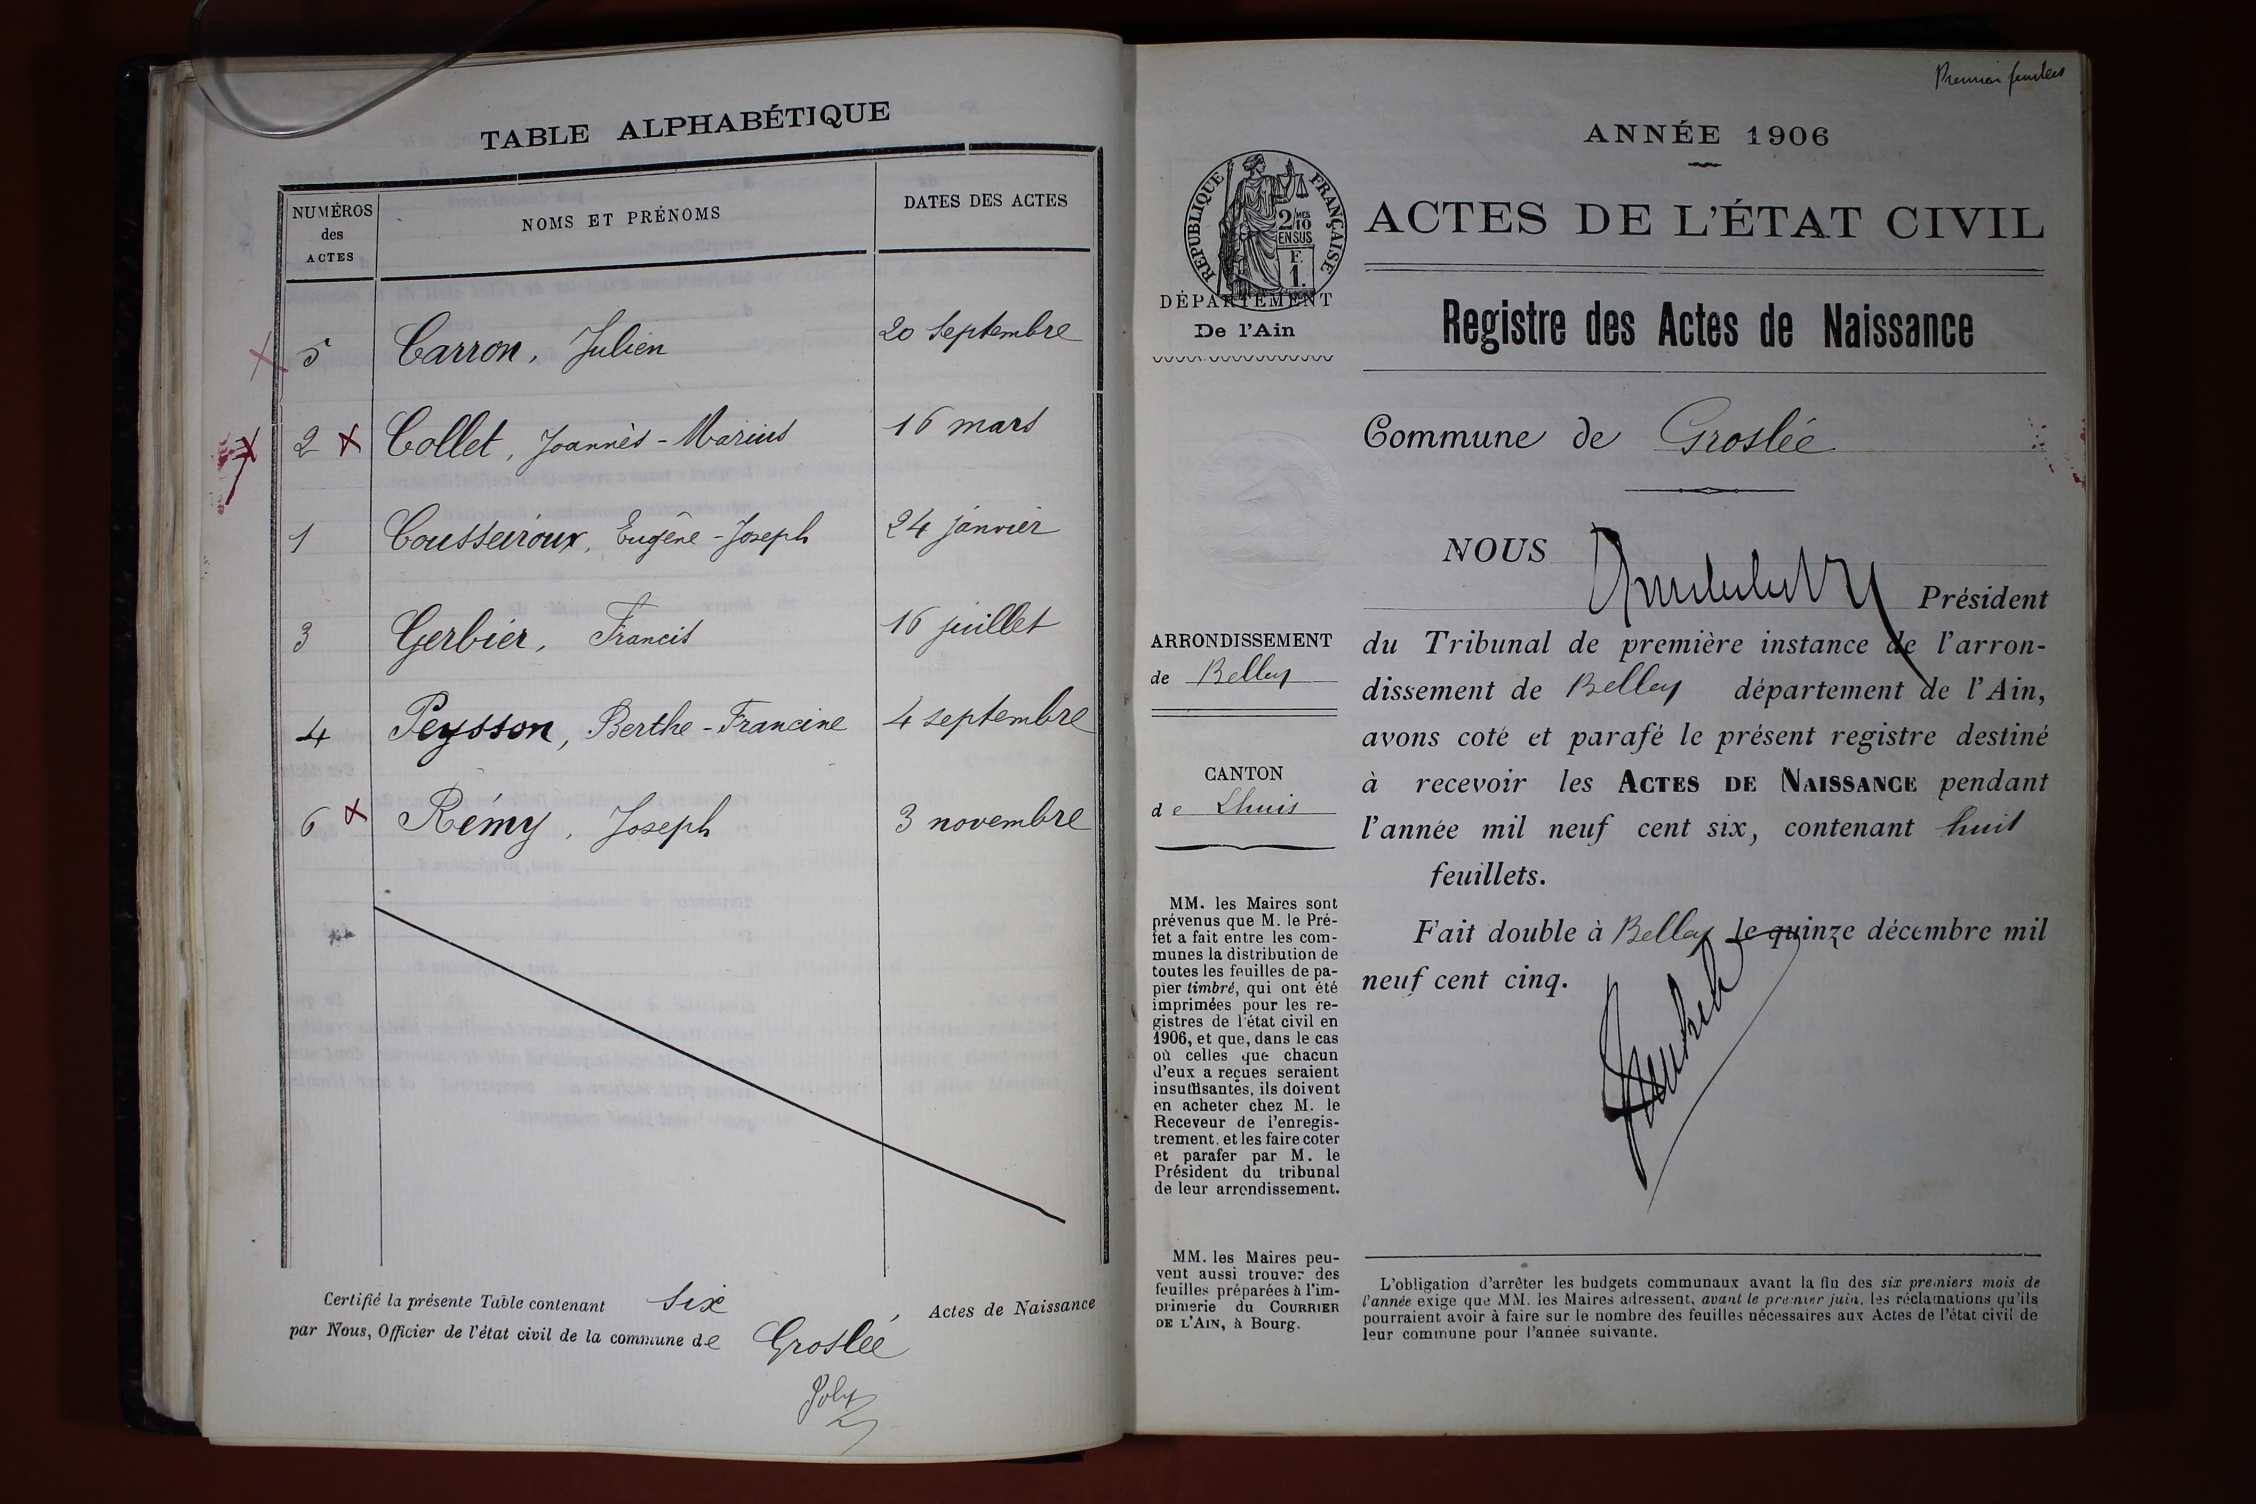 TABLE ALPHABÉTIQUE
NUMÉROS
des
ACTES
NOMS ET PRÉNOMS
DATES DES ACTES
5 Carron, Julien 20 Septembre
2 Collet, Joannès-Marius 16 mars
1 Cousseiroux, Eugêne-Joseph 24 janvier
3 Gerbier, Francis 16 juillet
4 Peysson, Berthe-Francine 4 septembre
6 Rémy, Joseph 3 novembre
Certifié la présente Table contenant Six Actes de Naissance
par Nous, Officier de l'état civil de la commune de Groslée
Joly
Premier
ANNÉE 1906
RÉPUBLIQUE FRANÇAISE
2/10 MES
EN SUS
F.
1.
ACTES DE L'ÉTAT CIVIL
DÉPARTEMENT
De l'Ain
Registre des Actes de Naissance
Commune de Groslée
NOUS
Président
ARRONDISSEMENT
de Belley
CANTON
de Lhuis
du Tribunal de première instance de l'arron-
dissement de Belley département de l'Ain,
avons coté et parafé le présent registre destiné
à recevoir les ACTES DE NAISSANCE pendant
l'année mil neuf cent six, contenant huit
feuillets.
Fait double à Belley le quinze décembre mil
neuf cent cinq.
MM. les Maires sont
prévenus que M. le Pré-
fet a fait entre les com-
munes la distribution de
toutes les feuilles de pa-
pier timbré, qui ont été
imprimées pour les re-
gistres de l'état civil en
1906, et que, dans le cas
où celles que chacun
d'eux a reçues seraient
insuffisantes, ils doivent
en acheter chez M. le
Receveur de l'enregis-
trement, et les faire coter
et parafer par M. le
Président du tribunal
de leur arrondissement.
MM. les Maires peu-
vent aussi trouver des
feuilles préparées à l'im-
primerie du COURRIER
DE L'AIN, à Bourg.
L'obligation d'arrêter les budgets communaux avant la fin des six premiers mois de
l'année exige que MM. les Maires adressent, avant le premier juin, les réclamations qu'ils
pourraient avoir à faire sur le nombre des feuilles nécessaires aux Actes de l'état civil de
leur commune pour l'année suivante.